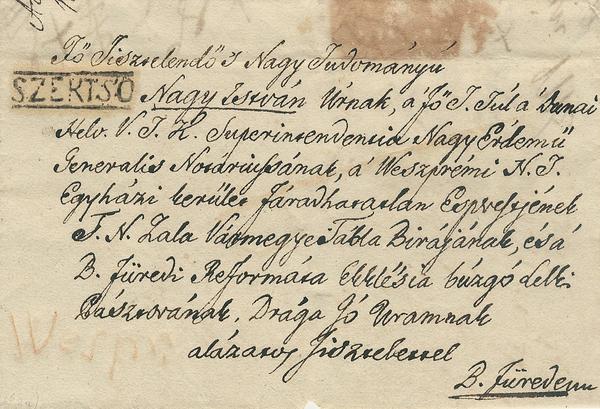 Fő Tisztelendő 's Nagy Tudományú
SZERTSŐ
Nagy István Úrnak, a' Fő T. Túl a' Dunai
Helv. V. T. H. Superintendentia Nagy Érdemű
Generalis Notáriussának, a' Weszprémi N. T.
Egyházi kerület Fáradhatatlan Esperestjének
T. N. Zala Vármegye Tábla Birájának, és a'
B. Füredi Reformáta Ekklésia búzgó lelki
Pásztorának. Drága Jó Uramnak
alázatos Tisztelettel
B. Füreden
Weszpr